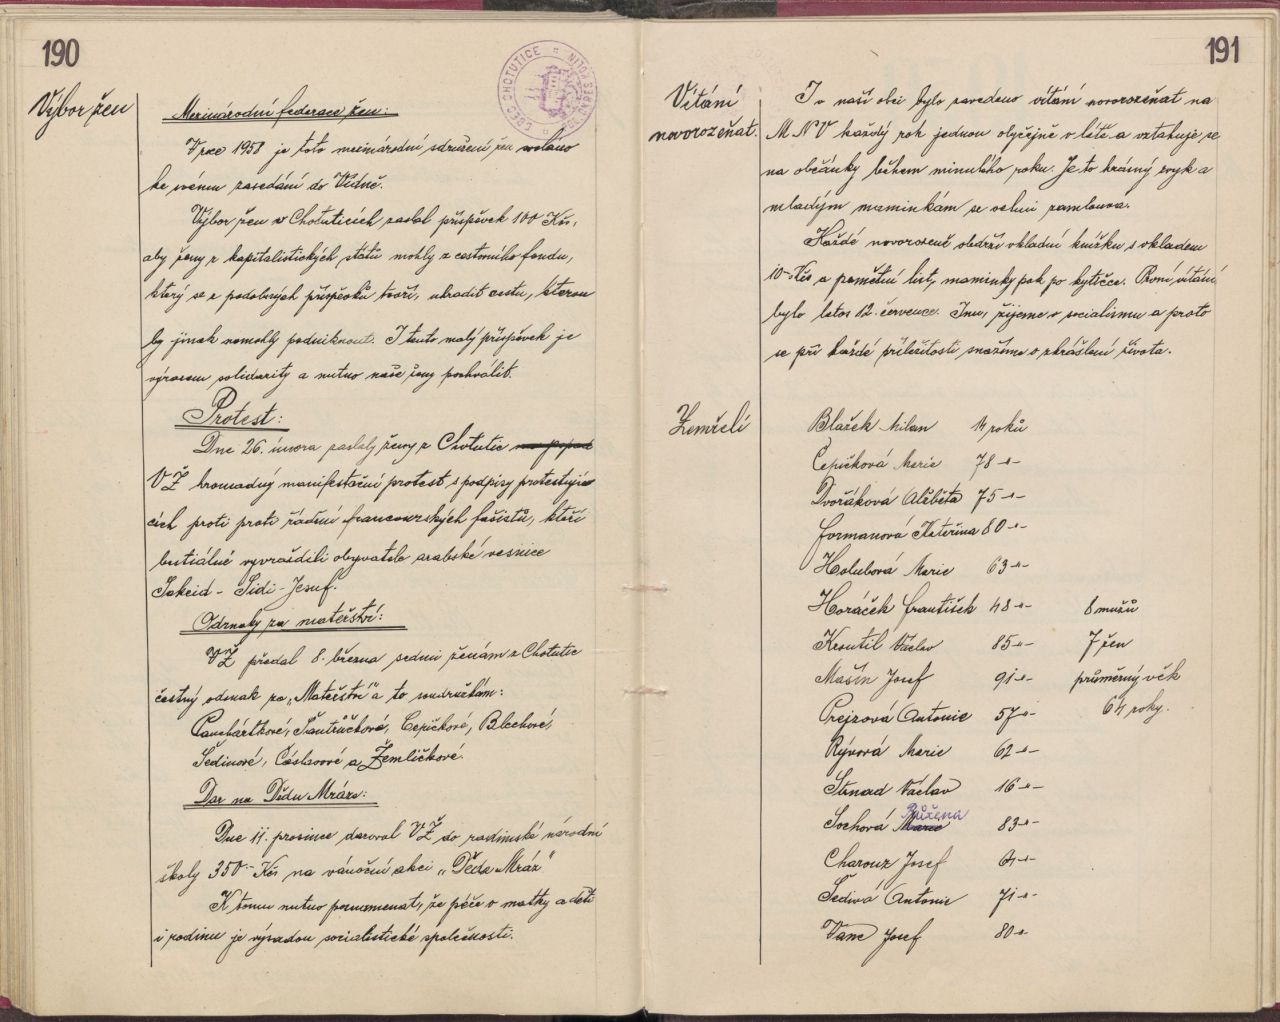 190
Výbor žen
OBEC CHOTUTICE
Mezinárodní federace žen:
V roce 1958 je toto mezinárodní sdružení žen svoláno
ke svému zasedání do Vídně.
Výbor žen v Chotuticích zaslal příspěvek 100 Kčs,
aby ženy z kapitalistických států mohly z cestovního fondu,
který se z podobných příspěvků tvoří, uhradit cestu, kterou
by jinak nemohly podniknout. I tento malý příspěvek je
výrazem solidarity a nutno naše ženy pochválit.
Protest:
Dne 26. února zaslaly ženy z Chotutic
VŽ hromadný manifestační protest s podpisy protestují
cích proti proti řádění francouzských fašistů, kteří
bestiálně vyvraždili obyvatele arabské vesnice
Sakeid - Sidi - Jesuf.
Odznaky za mateřství:
VŽ předal 8. března sedmi ženám z Chotutic
čestný odznak za „Mateřství" a to soudružkám:
Pauchártkové, Šantrůčkové, Čepičkové, Blechové,
Šedinové, Čáslavové a Žemličkové.
Dar na Dědu Mráze:
Dne 11. prosince daroval VŽ do radimské národní
školy 350.- Kčs na vánoční akci „Děda Mráz"
K tomu nutno poznamenat, že péče o matky a děti
i rodinu je výsadou socialistické společnosti.
191
Vítání
novorozeňat.
I v naší obci bylo zavedeno vítání novorozeňat na
MNV každý rok jednou obyčejně v létě a vztahuje se
na občánky během minulého roku. Je to krásný zvyk a
mladým maminkám se velmi zamlouvá.
Každé novorozeně obdrží vkladní knížku s vkladem
10.- Kčs a pamětní list, maminky pak po kytičce. První vítání
bylo letos 12. července. Inu, žijeme v socialismu a proto
se při každé příležitosti snažíme o zkrášlení života.
Zemřelí
Blažek Milan 14 roků
Čepičková Marie 78 -"-
Dvořáková Alžběta 75 -"-
Formanová Kateřina 80 -"-
Holubová Marie 63 -"-
Horáček František 48 -"- 8 mužů
Kroutil Václav 85 -"- 7 žen
Mašín Josef 91 -"- průměrný věk
Prejzová Antonie 57 -"- 64 roky.
Rývová Marie 62 -"-
Strnad Václav 16 -"-
Růžena
Sochová Marie 83 -"-
Charouz Josef -"-
Šedivá Antonie 71 -"-
Vanc Josef 80 -"-